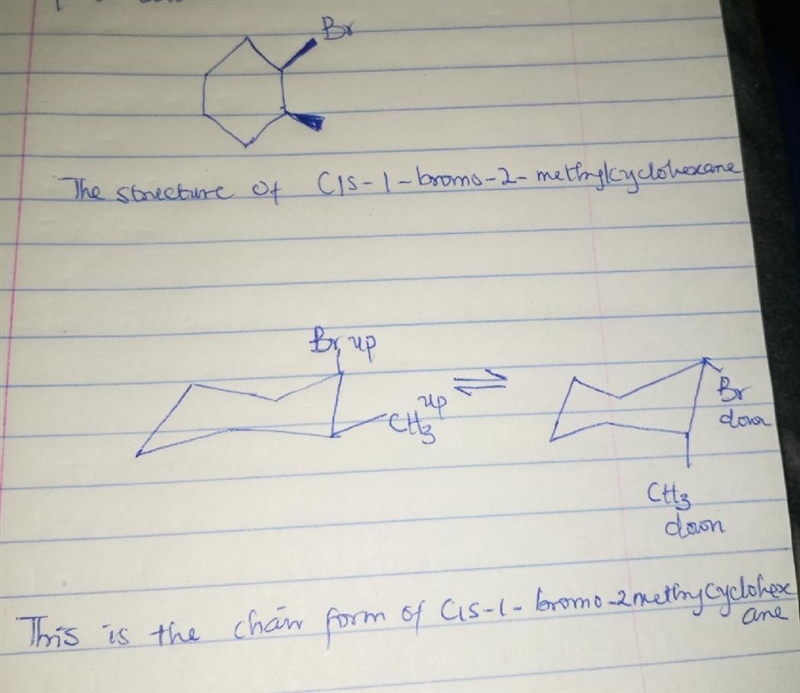 Br
The structure of Cis-1-bromo-2-methylcyclohexane
Br up
up
CH3
Br
down
CH3
down
This is the chair form of Cis-1-bromo-2methylcyclohex
ane